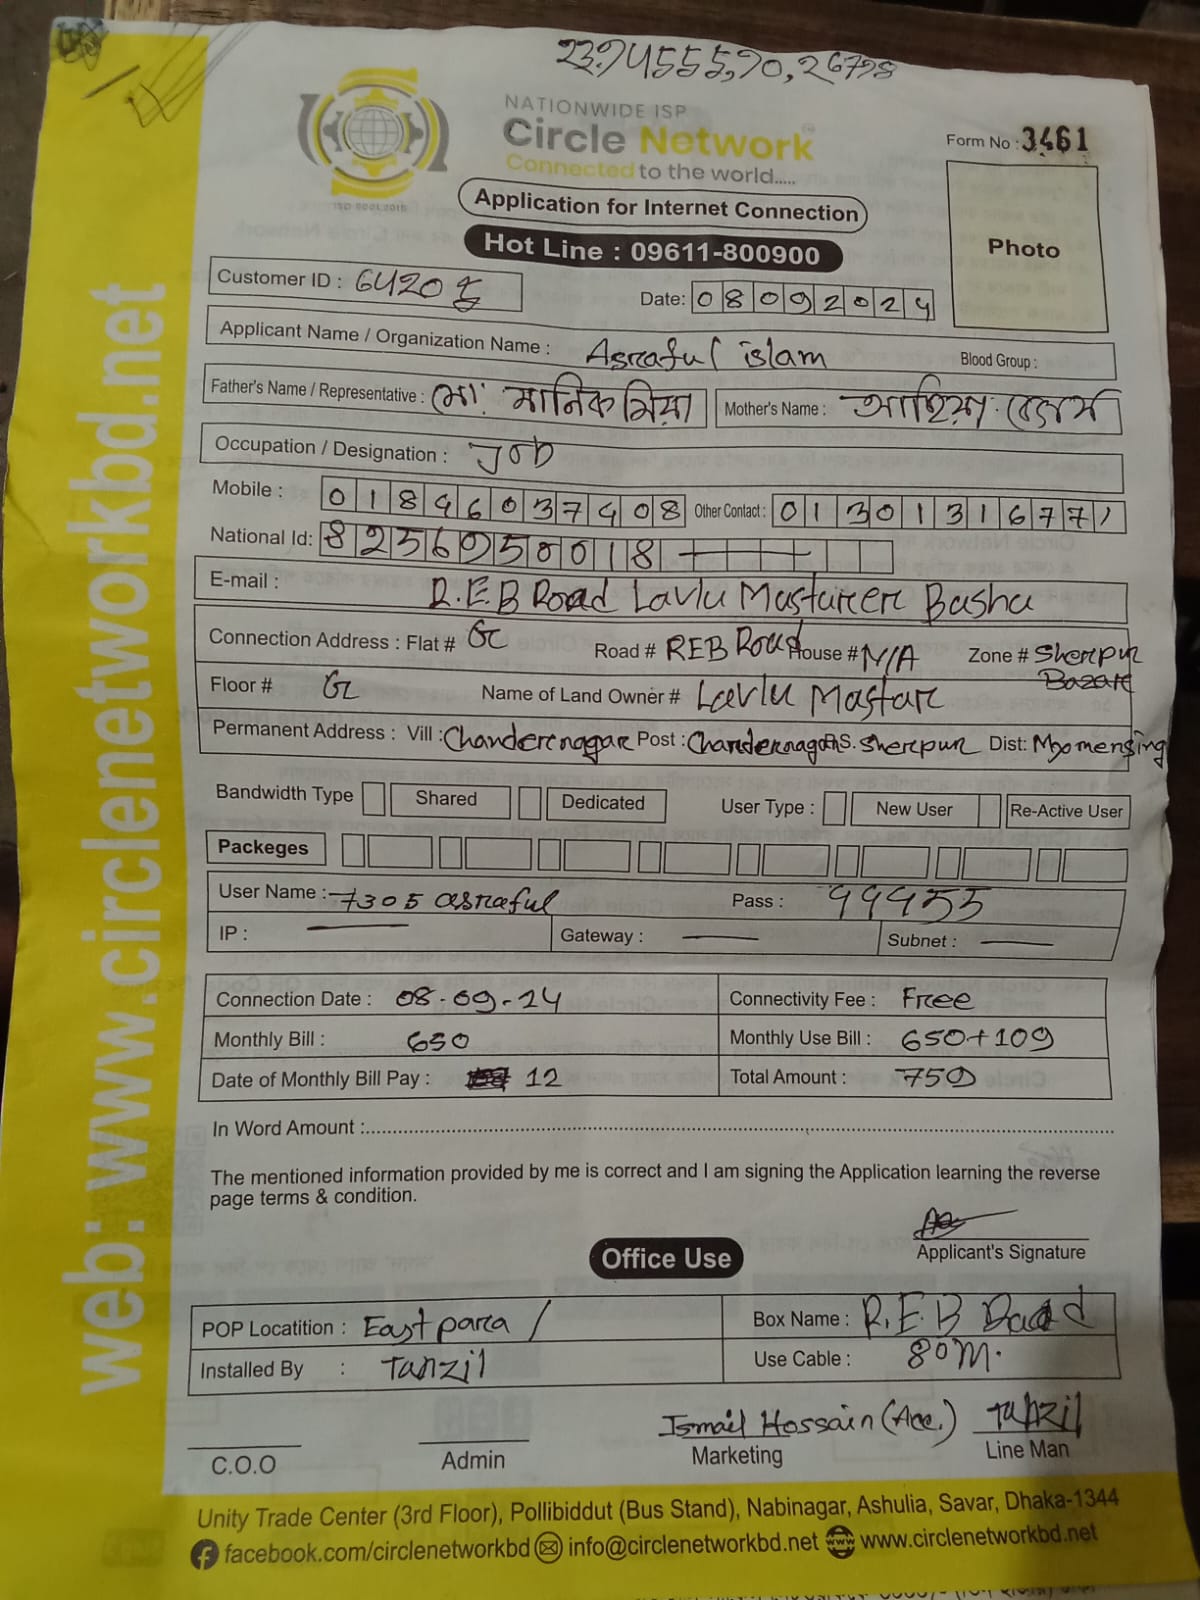 23.94555,90,26798
NATIONWIDE ISP
Circle Network
Connected to the world.....
ISO 9001:2015
Form No : 3461
Application for Internet Connection
Hot Line : 09611-800900
Photo
Customer ID : 6420
Date: 08092024
Applicant Name / Organization Name : Asraful islam Blood Group :
Father's Name / Representative : মো: মানিক মিয়া Mother's Name : আছিয়া বেগম
Occupation / Designation : JOB
Mobile : 01846037408 Other Contact : 01301316771
National Id: 8256950018
E-mail : R.E.B Road Lavlu Mastarer Basha
Connection Address : Flat # GC Road # REB Road House # N/A Zone # Sherpur
Bazar
Floor # Name of Land Owner # Lavlu Mastar
Permanent Address : Vill : Chandernagar Post : Chandernagar P.S. Sherpur Dist: Mymensing
Bandwidth Type Shared Dedicated User Type : New User Re-Active User
Packeges
User Name : 7305 asraful Pass : 99955
IP : Gateway : Subnet :
Connection Date : 08-09-24 Connectivity Fee : Free
Monthly Bill : 650 Monthly Use Bill : 650+109
Date of Monthly Bill Pay : 12 Total Amount : 759
In Word Amount :
The mentioned information provided by me is correct and I am signing the Application learning the reverse
page terms & condition.
Applicant's Signature
Office Use
POP Locatition : East para / Box Name : R.E.B Road
Installed By : Tanzil Use Cable : 80M.
Ismail Hossain (Acc.) Tanzil
C.O.O Admin Marketing Line Man
Unity Trade Center (3rd Floor), Pollibiddut (Bus Stand), Nabinagar, Ashulia, Savar, Dhaka-1344
facebook.com/circlenetworkbd info@circlenetworkbd.net www.circlenetworkbd.net
web: www.circlenetworkbd.net